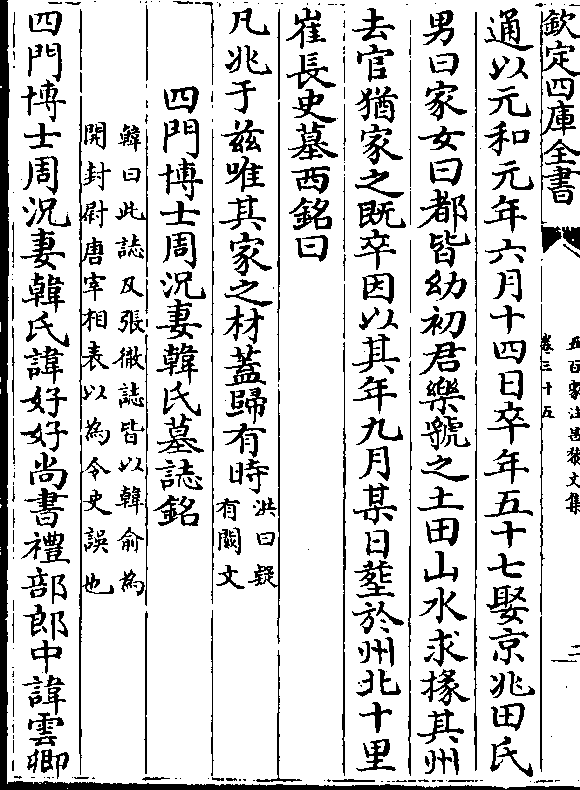 欽定四庫全書
五百家注昌黎文集
卷三十五
二
通以元和元年六月十四日卒年五十七娶京兆田氏
男曰家女曰都皆幼初君樂虢之土田山水求掾其州
去官猶家之既卒因以其年九月某日塟於州北十里
崔長史墓西銘曰
凡兆于兹唯其家之材蓋歸有時
洪曰疑
有闕文
四門博士周況妻韓氏墓誌銘
韓曰此誌及張徹誌皆以韓俞為
開封尉唐宰相表以為令史誤也
四門博士周況妻韓氏諱好好尚書禮部郎中諱雲卿